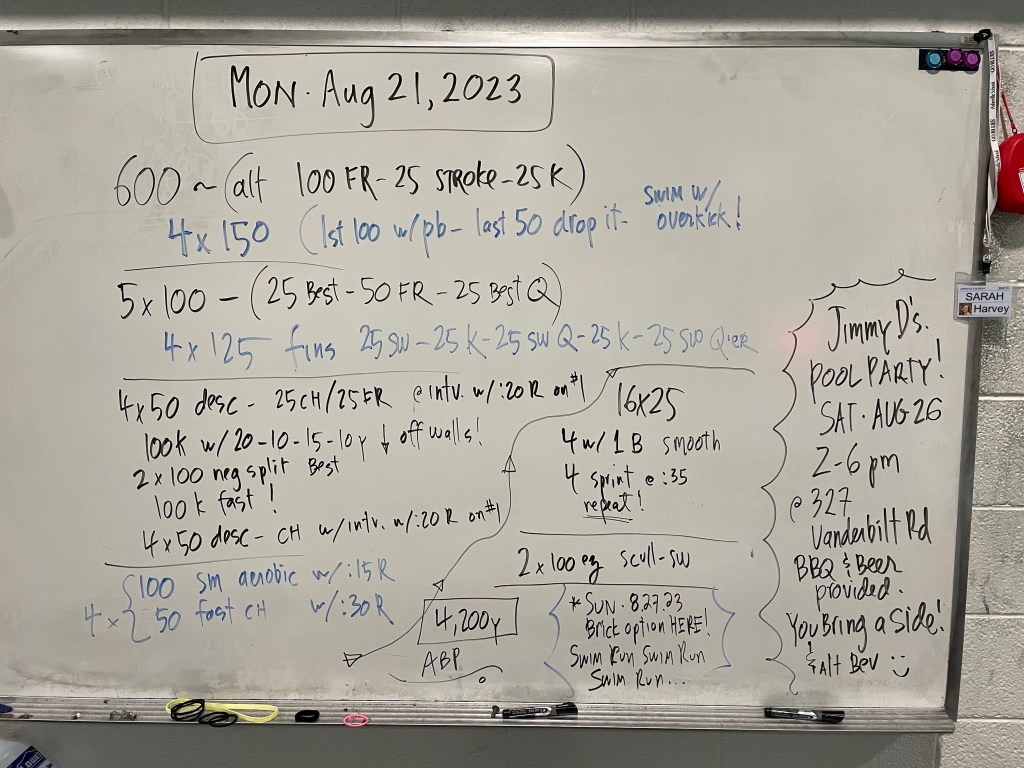 MON. Aug 21, 2023
600 ~ (alt 100 FR - 25 STROKE - 25 K)
4 x 150 (1st 100 w/pb - last 50 drop it - SWIM W/ overkick!
5 x 100 - (25 Best - 50 FR - 25 Best Q)
4 x 125 fins 25 SW - 25 K - 25 SW Q - 25 K - 25 SW Q·ER
4 x 50 desc - 25 CH/25 FR @ intv. w/:20 R on #1
100 K w/ 20-10-15-10y ↓ off walls!
2 x 100 neg split Best
100 k fast!
4 x 50 desc - CH w/intv. w/:20 R on #1
4 x { 100 sm aerobic w/:15 R
50 fast CH w/:30 R
16x25
4 w/ 1 B smooth
4 sprint @ :35
repeat!
2 x 100 ez scull-sw
4,200y
ABP
* SUN. 8.27.23
Brick option HERE!
Swim Run Swim Run
Swim Run...
Jimmy D's.
POOL PARTY!
SAT. AUG 26
2-6 pm
@ 327
Vanderbilt Rd
BBQ & Beer
provided.
You Bring a Side!
& Alt Bev
SARAH
Harvey